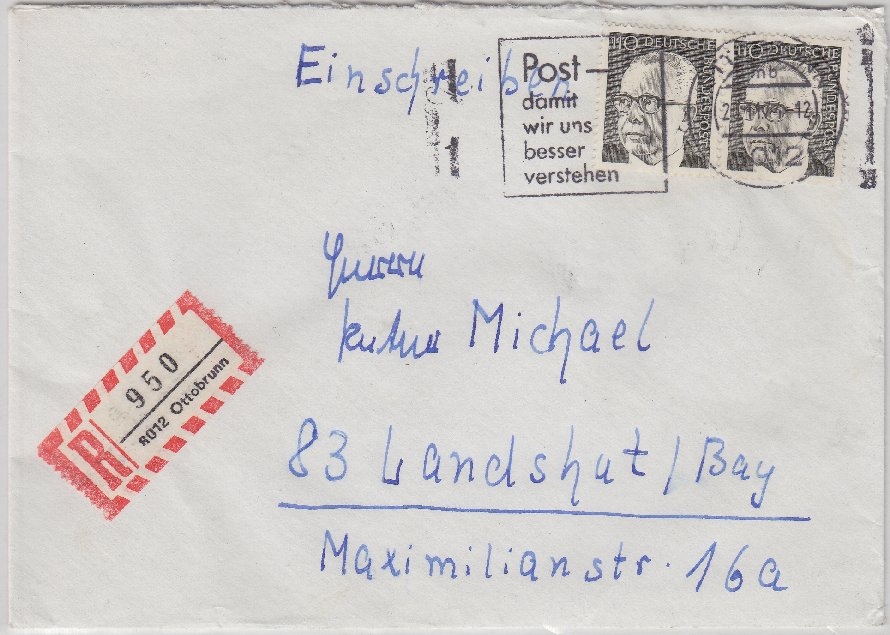 Einschreiben
Post
damit
wir uns
besser
verstehen
110 DEUTSCHE BUNDESPOST
110 DEUTSCHE BUNDESPOST
8012
Herrn
Michael
83 Landshut / Bay
Maximilianstr. 16a
R
950
8012 Ottobrunn